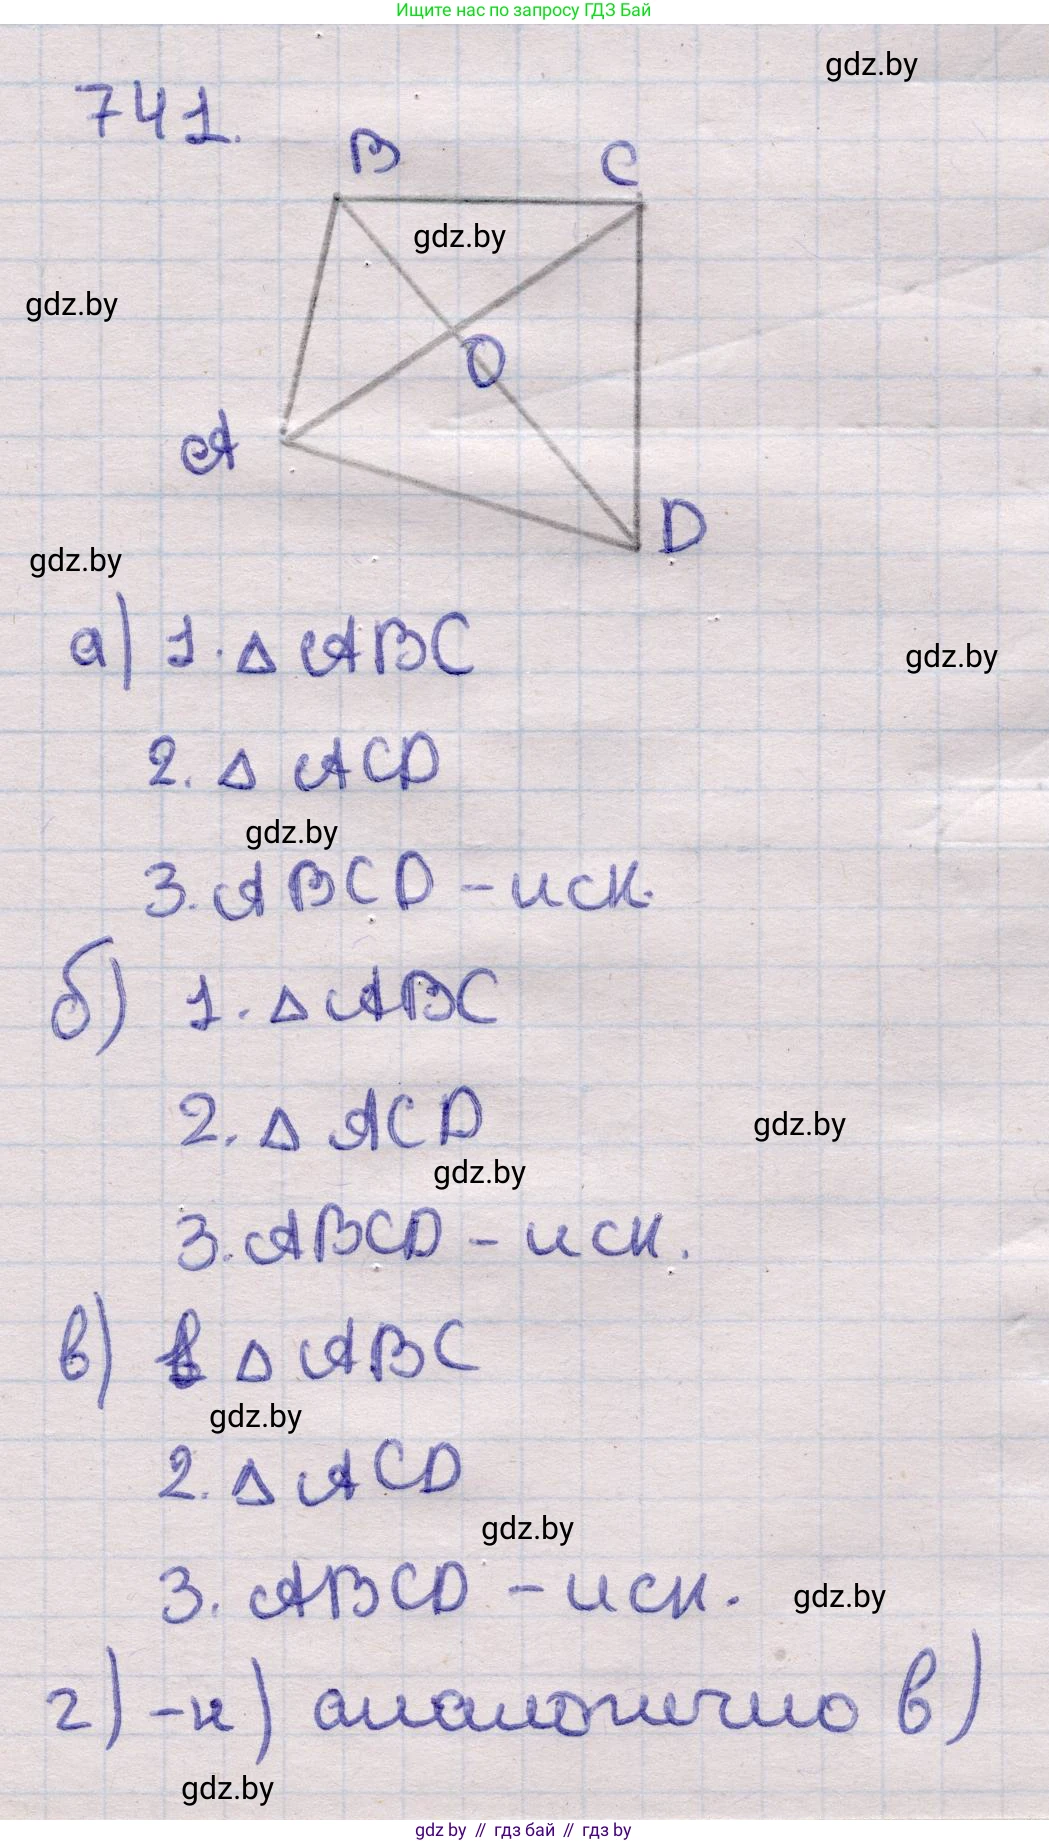 Ищите нас по запросу ГДЗ Бай
gdz.by
741.
B C
gdz.by
gdz.by
O
A
D
gdz.by
а) 1. Δ ABC
gdz.by
2. Δ ACD
gdz.by
3. ABCD – иск.
б) 1. Δ ABC
2. Δ ACD
gdz.by
gdz.by
3. ABCD – иск.
в) 1. Δ ABC
gdz.by
2. Δ ACD
gdz.by
3. ABCD – иск.
gdz.by
г) – к) аналогично в)
gdz.by
gdz by // гдз бай // gdz by